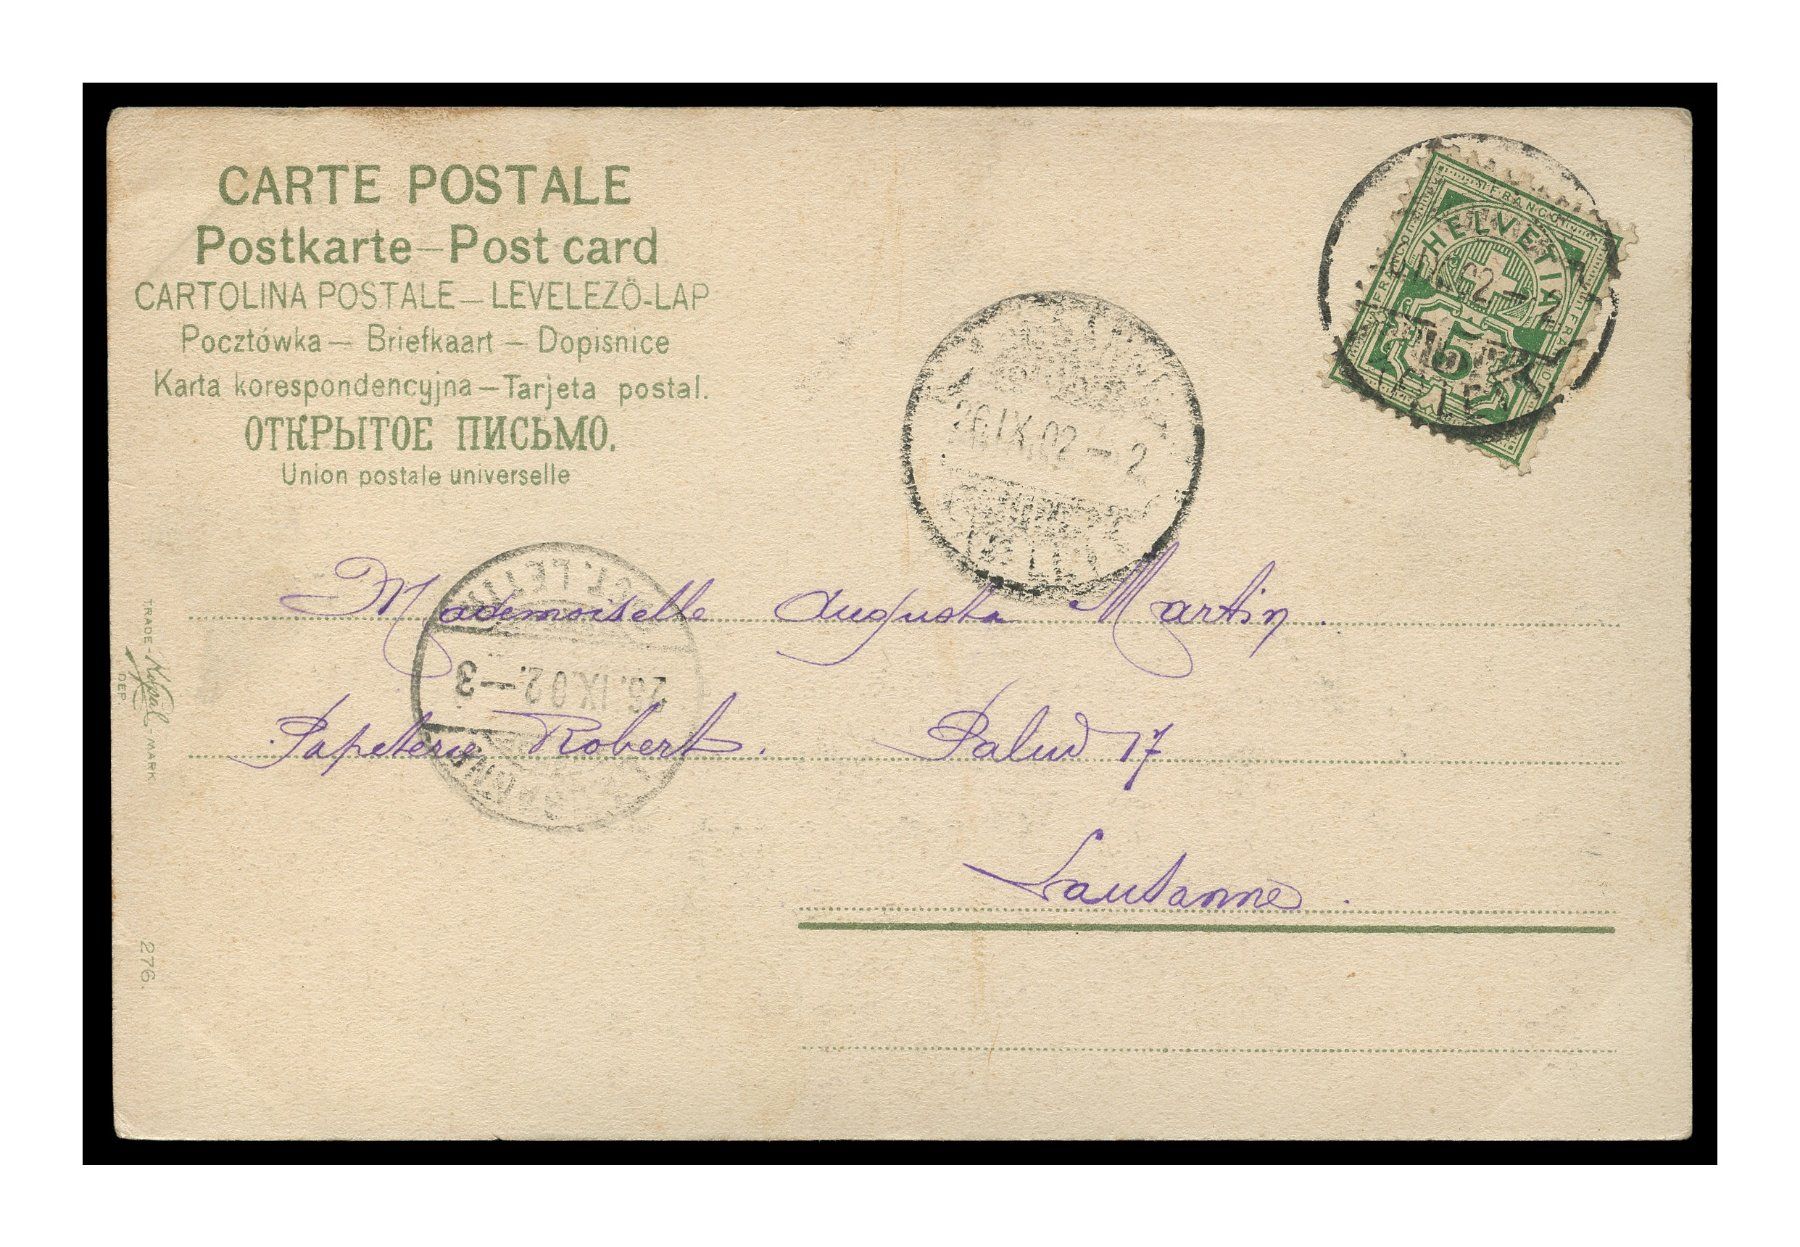 CARTE POSTALE
Postkarte—Post card
CARTOLINA POSTALE—LEVELEZŐ-LAP
Pocztówka—Briefkaart—Dopisnice
Karta korespondencyjna—Tarjeta postal.
ОТКРЫТОЕ ПИСЬМО.
Union postale universelle
FRANCO
HELVETIA
5
26.IX.02—2
Mademoiselle Augusta Martin.
26.IX.02.—3
Papeterie Robert. Palud 17
Lausanne.
TRADE-MARK
DEP.
276.